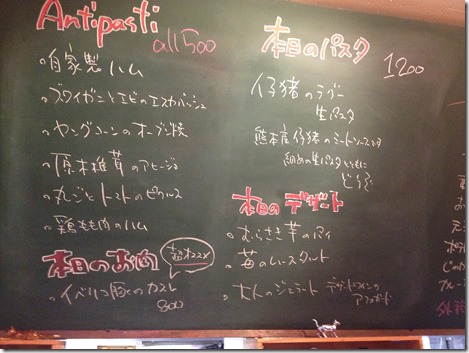 Antipasti
all 500
自家製ハム
ズワイガニとエビのエスカベッシュ
ヤングコーンのオーブン焼
原木椎茸のアヒージョ
丸ごとトマトのピクルス
鶏もも肉のハム
本日のお肉
超オススメ
イベリコ豚の
800
本日のパスタ
1200
仔猪のラグー
生パスタ
熊本産仔猪のミートソースです
細めの生パスタとともに
どうぞ
本日のデザート
むらさき芋のパイ
苺のムースタルト
大人のジェラート デザートワインの
アフォガード